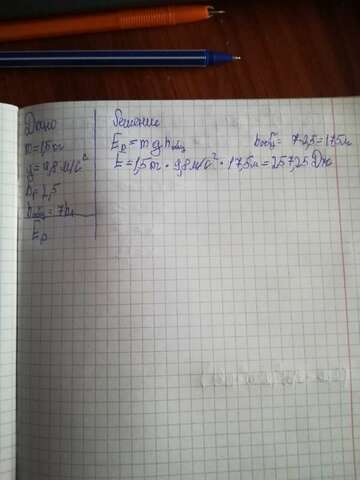 Дано
m=1,5 кг
g=9,8 м/с²
h₁=2,5
hобщ=7h₁
Eₚ
Решение
Eₚ=mghобщ hобщ=7·2,5=17,5м
E=1,5кг·9,8м/с²·17,5м=257,25Дж